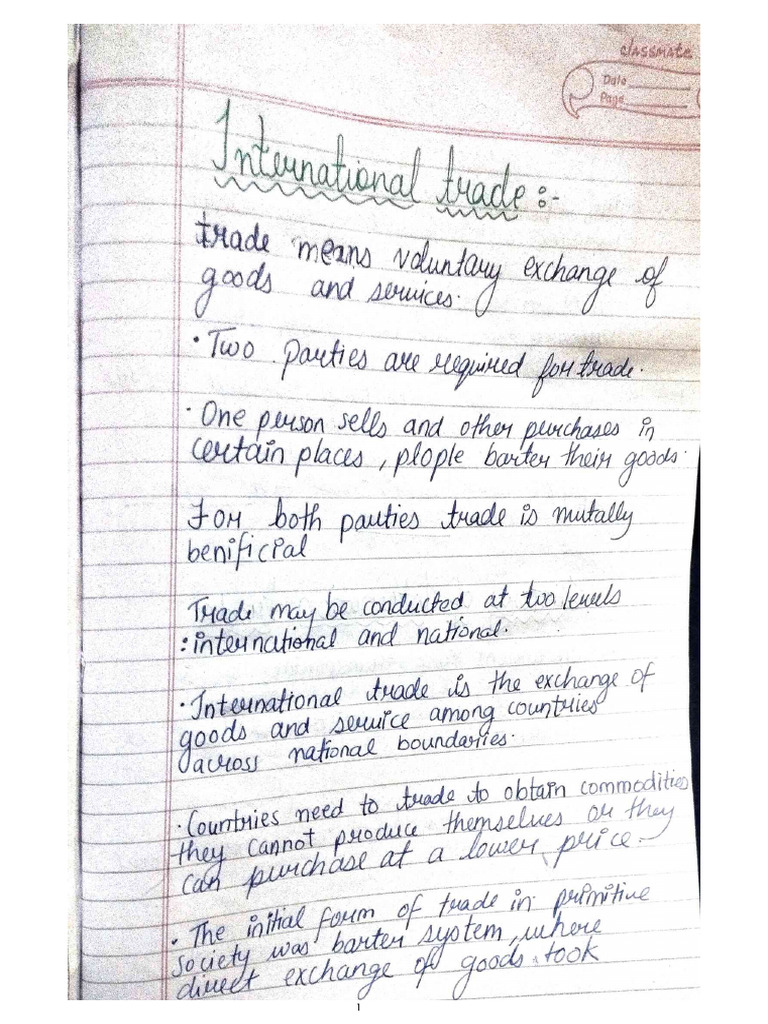 classmate
Date
Page
International trade :-
trade means voluntary exchange of
goods and services.
• Two parties are required for trade.
• One person sells and other purchases in
certain places, plople barter their goods.
For both parties trade is mutally
benificial
Trade may be conducted at two levels
: international and national.
• International trade is the exchange of
goods and service among countries
across national boundaries.
• Countries need to trade to obtain commodities
they cannot produce themselves or they
can purchase at a lower price.
• The initial form of trade in primitive
society was barter system, where
direct exchange of goods took
1